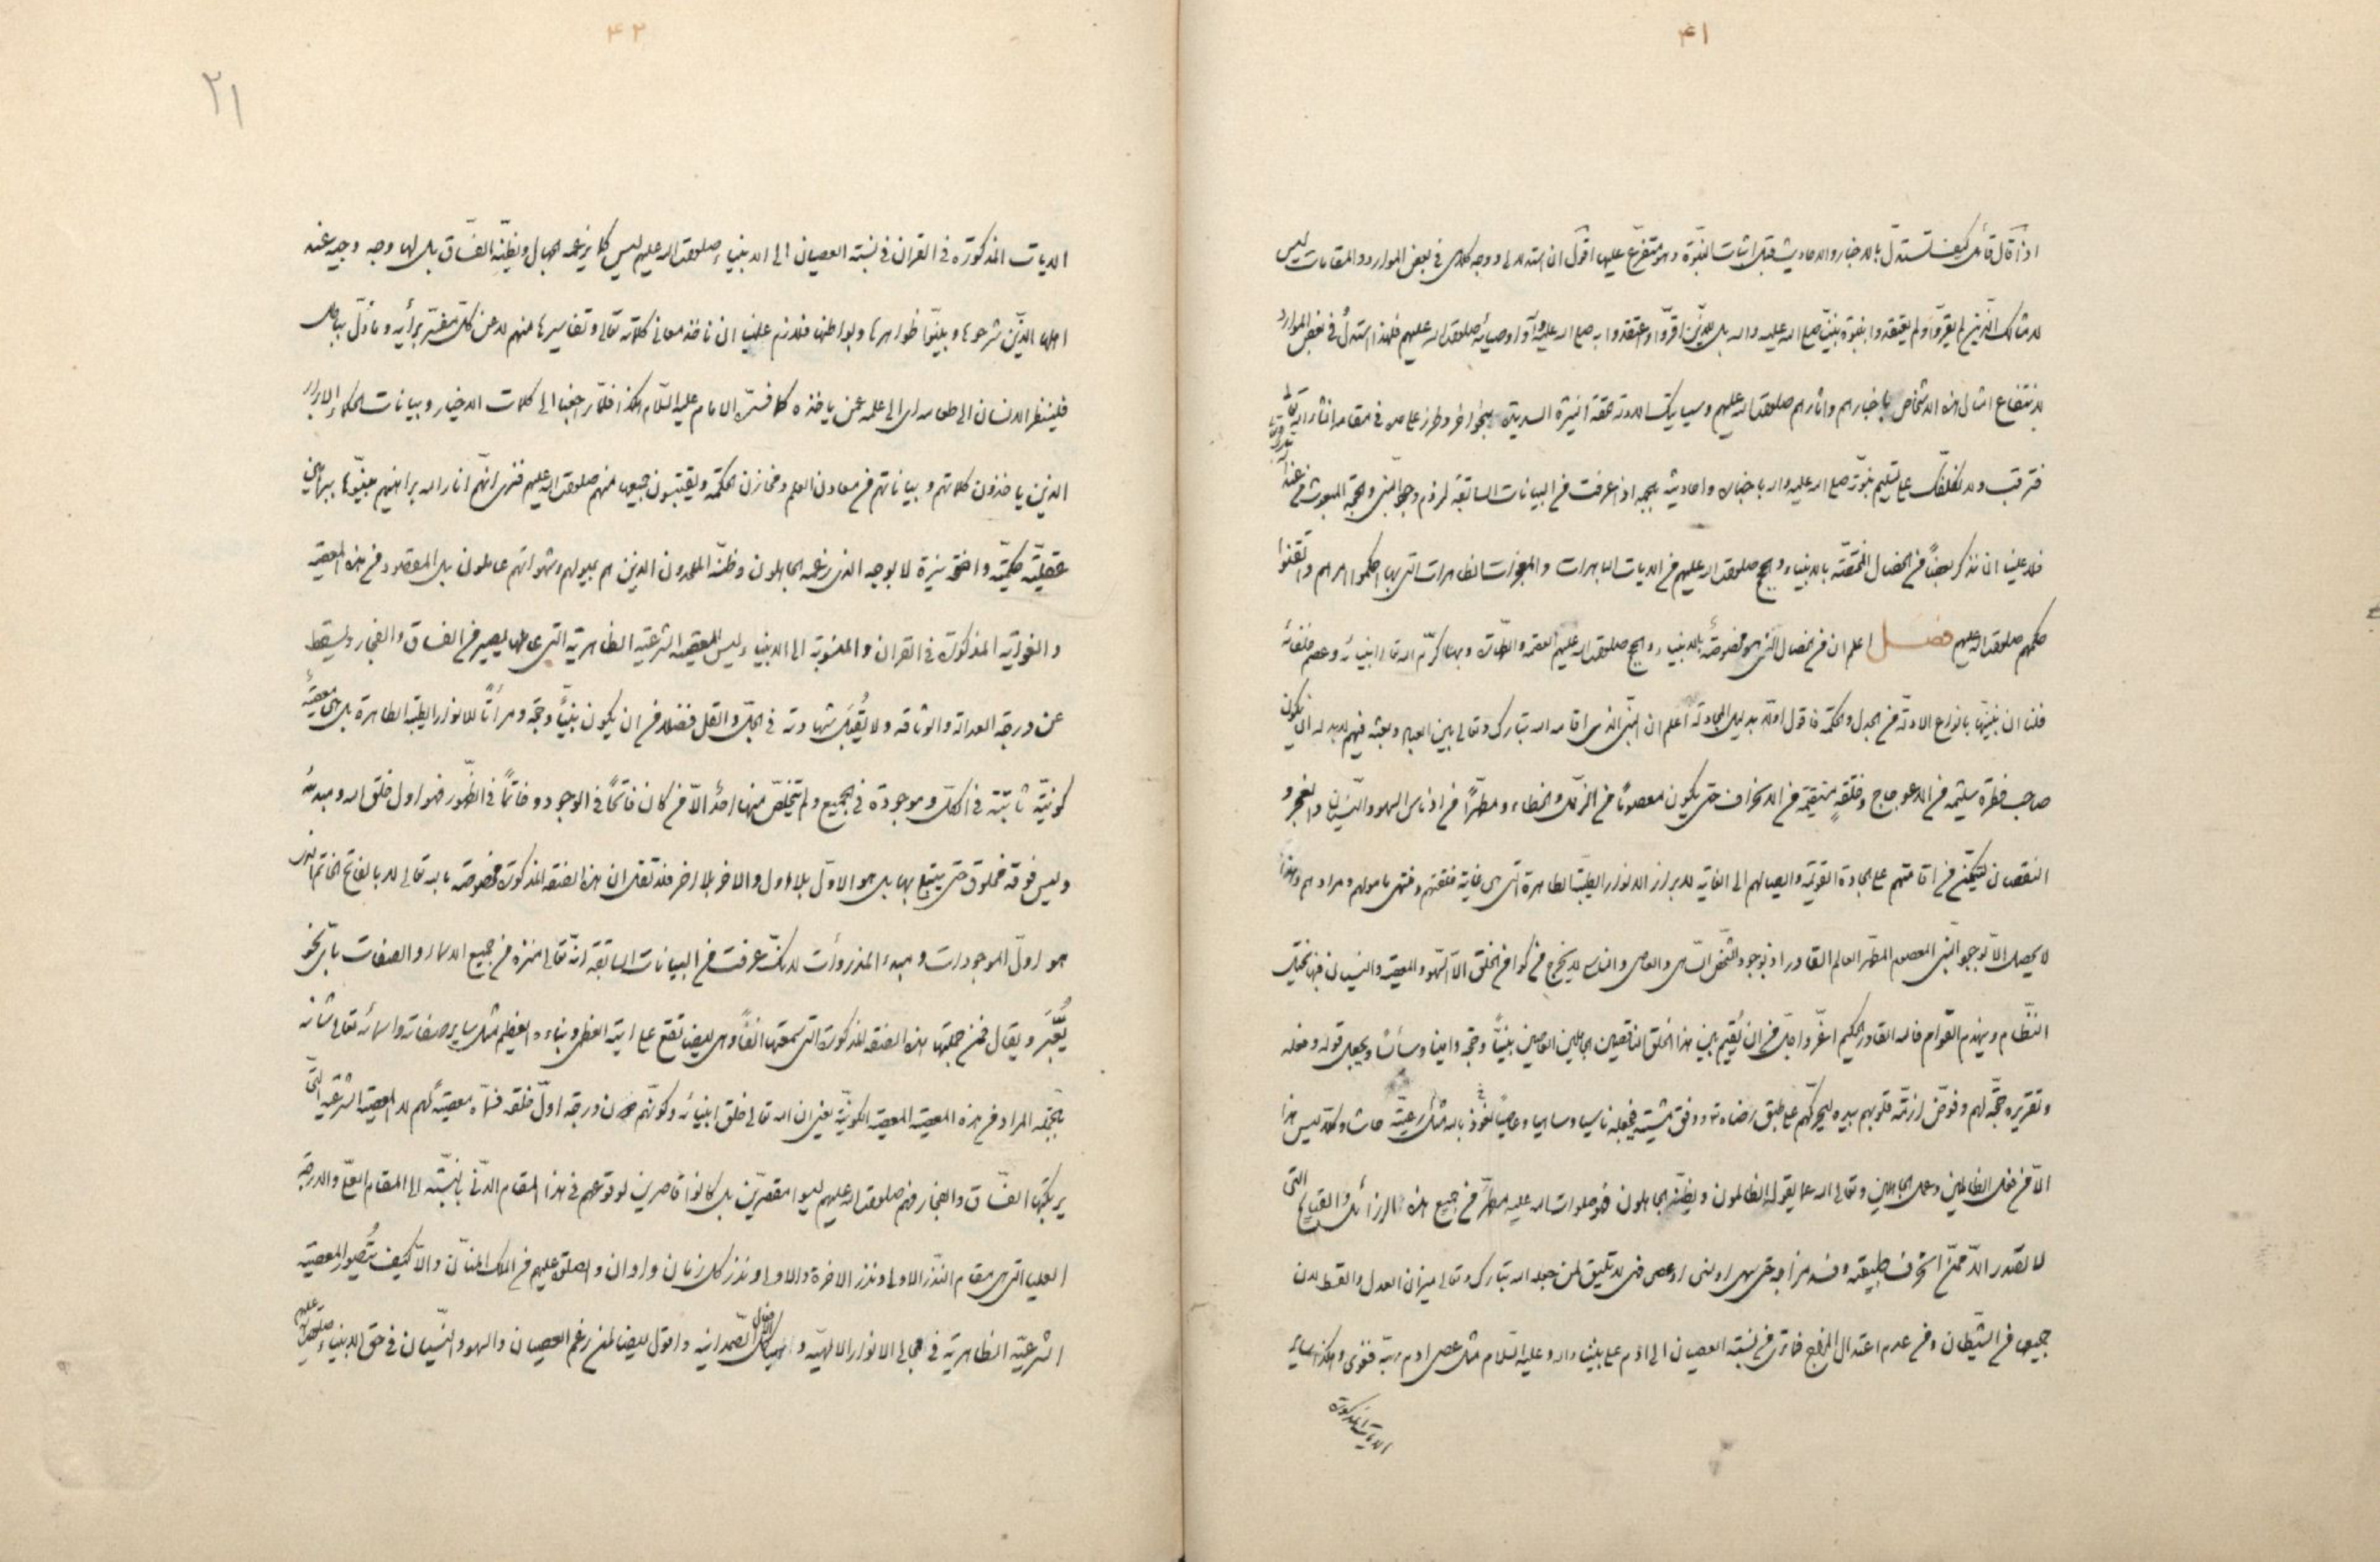 ۴۱
اذا قال قائل کیف تستدل بالاخبار والاحادیث قبل اثبات النبوة وهو متفرع علیها اقول ان استدلالی ووجه کلامی فی بعض الموارد والمقامات لیس
لامثالک الذین لم یقروا ولم یعتقدوا بنبوة نبینا صلی الله علیه واله بل للذین اقروا واعتقدوا به صلی الله علیه واله واوصیائه صلوات الله علیهم فلهذا استدل فی بعض الموارد
لانتفاع امثال هذه الاشخاص باخبارهم واثارهم صلوات الله علیهم وسیاتیک الادلة بنحو اخر وطرز علی حدة فی مقامه انشاء الله تعالی
فترقب ولا نکلفک علی تسلیم نبوته صلی الله علیه واله باخباره واحادیثه بالجمله اذا عرفت من البیانات السابقة لزوم وجود النبی والحجة المبعوث من عند
فلا علینا ان نذکر بعضاً من الخصال المختصة بالانبیاء والحجج صلوات الله علیهم من الایات الباهرات والمعجزات الظاهرات التی بها احکموا امرهم واتقنوا
حکمهم صلوات الله علیهم فصل اعلم ان من الخصال التی هی مخصوصة بالانبیاء والحجج صلوات الله علیهم العصمة والطهارة وبها کرم الله تعالی انبیائه وعصم خلفائه
فلنا ان نبینها بانواع الادلة من الجدل والحکمة فاقول اولا بدلیل المجادلة اعلم ان النبی الذی اقامه الله تبارک وتعالی بین العباد وبعثه فیهم لابد له ان یکون
صاحب فطرة سلیمة من الاعوجاج وخلقة مستقیمة من الانحراف حتی یکون معصوماً من الزلل والخطاء ومطهراً من ادناس السهو والنسیان والعجز و
النقصان لیتمکن من اقامتهم علی الجادة القویمة وایصالهم الی الغایة لابراز الانوار الطیبة الطاهرة التی هی غایة خلقتهم ومنتهی مامولهم ومرادهم وهذا
لا یحصل الا بوجود النبی المعصوم المطهر العالم القادر اذ بوجود الشخص الساهی والعاصی والناسی لا یخرج من کوامن الخلق الا السهو والمعصیة والنسیان فبها یختل
النظام وینهدم القوام فالله القادر الحکیم اعز واجل من ان یقیم بین هذا الخلق الناقصین الجاهلین العاصین نبیاً وحجة وامینا وسائساً ویجعل قوله وفعله
وتقریره حجة لهم وفوض ازمة قلوبهم بیده لیحرکهم علی طبق رضاه ووفق مشیته فیجعله ناسیا وساهیا وعاصیاً نعوذ بالله مثل رعیته حاشا وکلا لیس هذا
الا من فعل الظالمین وعمل الجاهلین وتعالی الله عما یقول الظالمون ویظنه الجاهلون فهو صلوات الله علیه مطهر من جمیع هذه الرذائل والقبایح التی
لا تصدر الا ممن انحرف طبیعته وفسد مزاجه حتی سهی او نسی او عصی فهی لا تلیق لمن جعله الله تبارک وتعالی میزان العدل والقسط لان
جمیعها من الشیطان ومن عدم اعتدال المزاج فما تری من نسبة العصیان الی ادم علی نبینا واله وعلیه السلام مثل عصی ادم ربه فغوی وهکذا سایر
الایات المذکورة
۴۲
۲۱
الایات المذکورة فی القران فی نسبة العصیان الی الانبیاء صلوات الله علیهم لیس کما یزعمه الجهال ویظنه الفساق بل لها وجه وجیه عند
اهله الذین شرعوها وبینوا ظواهرها وبواطنها فلازم علینا ان ناخذ معانی کلماته تعالی وتفاسیرها منهم لا عن کل مفسر برأیه وماول بباطل
فلینظر الانسان الی طعامه ای الی علمه عمن یاخذه کما فسره الامام علیه السلام هکذا فلما راجعنا الی کلمات الاخیار وبیانات الحکماء الابرار
الذین یاخذون کلماتهم وبیاناتهم من معادن العلم ومخازن الحکمة ویقتبسون جمیعها منهم صلوات الله علیهم فنری انهم انار الله براهینهم بینوها ببراهین
عقلیة حکمیة واضحة نیرة لا بوجه الذی زعمه الجاهلون وظنه الملحدون الذین هم بمیولهم وشهواتهم عاملون بل المقصود من هذه المعصیة
والغوایة المذکورة فی القران والمنسوبة الی الانبیاء لیس المعصیة الشرعیة الظاهریة التی عاملها یصیر من الفساق والفجار ویسقط
عن درجة العدالة والوثاقة ولا یقبل شهادته فی الجل والقل فضلا من ان یکون نبیاً وحجة ومرأتاً للانوار الطیبة الطاهرة بل هی معصیة
کونیة ثابتة فی الکل وموجودة فی الجمیع ولم یتخلص منها احد الا من کان فاتحاً فی الوجود وخاتماً فی الظهور فهو اول خلق الله ومبدئه
ولیس فوقه مخلوق حتی یبتلی بها بل هو الاول بلا اول والاخر بلا اخر فلا تقل ان هذه الصفة المذکورة مخصوصة بالله تعالی لا بالفاتح الخاتم الذی
هو اول الموجودات ومبدء المذروات لانک عرفت من البیانات السابقة انه تعالی منزه من جمیع الاسماء والصفات بای نحو
یعبر ویقال فمن جملتها هذه الصفة المذکورة التی سمعتها انفاً وهی ایضا تقع علی ایته العظمی ونبائه العظیم مثل سایر صفاته واسمائه تعالی شانه
بالجمله المراد من هذه المعصیة المعصیة الکونیة یعنی ان الله تعالی خلق انبیائه وکونهم دون درجة اول خلقه فسماه معصیة لهم لا المعصیة الشرعیة التی
یرتکبها الفساق والفجار فهم صلوات الله علیهم لیسوا مقصرین بل کانوا قاصرین لوقوعهم فی هذا المقام الدنی بالنسبة الی المقام العلی والدرجة
العلیا التی هی مقام النذر الاولی ونذر الاخرة والاولی ونذر کل زمان واوان والصلوة علیهم من الملک المنان والا کیف یتصور المعصیة
الشرعیة الظاهریة فی مجالی الانوار الالهیة والهیاکل الصمدانیة واقول ایضا لمن زعم العصیان والسهو والنسیان فی حق الانبیاء صلوات الله علیهم